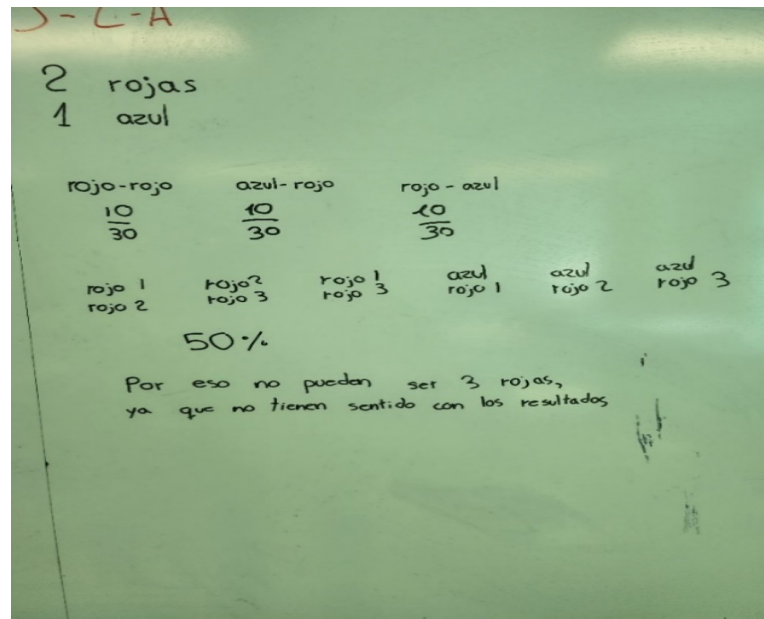 J-L-A
2 rojas
1 azul
rojo-rojo azul-rojo rojo-azul
10/30 10/30 10/30
rojo 1 rojo 2 rojo 1 azul azul azul
rojo 2 rojo 3 rojo 3 rojo 1 rojo 2 rojo 3
50%
Por eso no pueden ser 3 rojas,
ya que no tienen sentido con los resultados